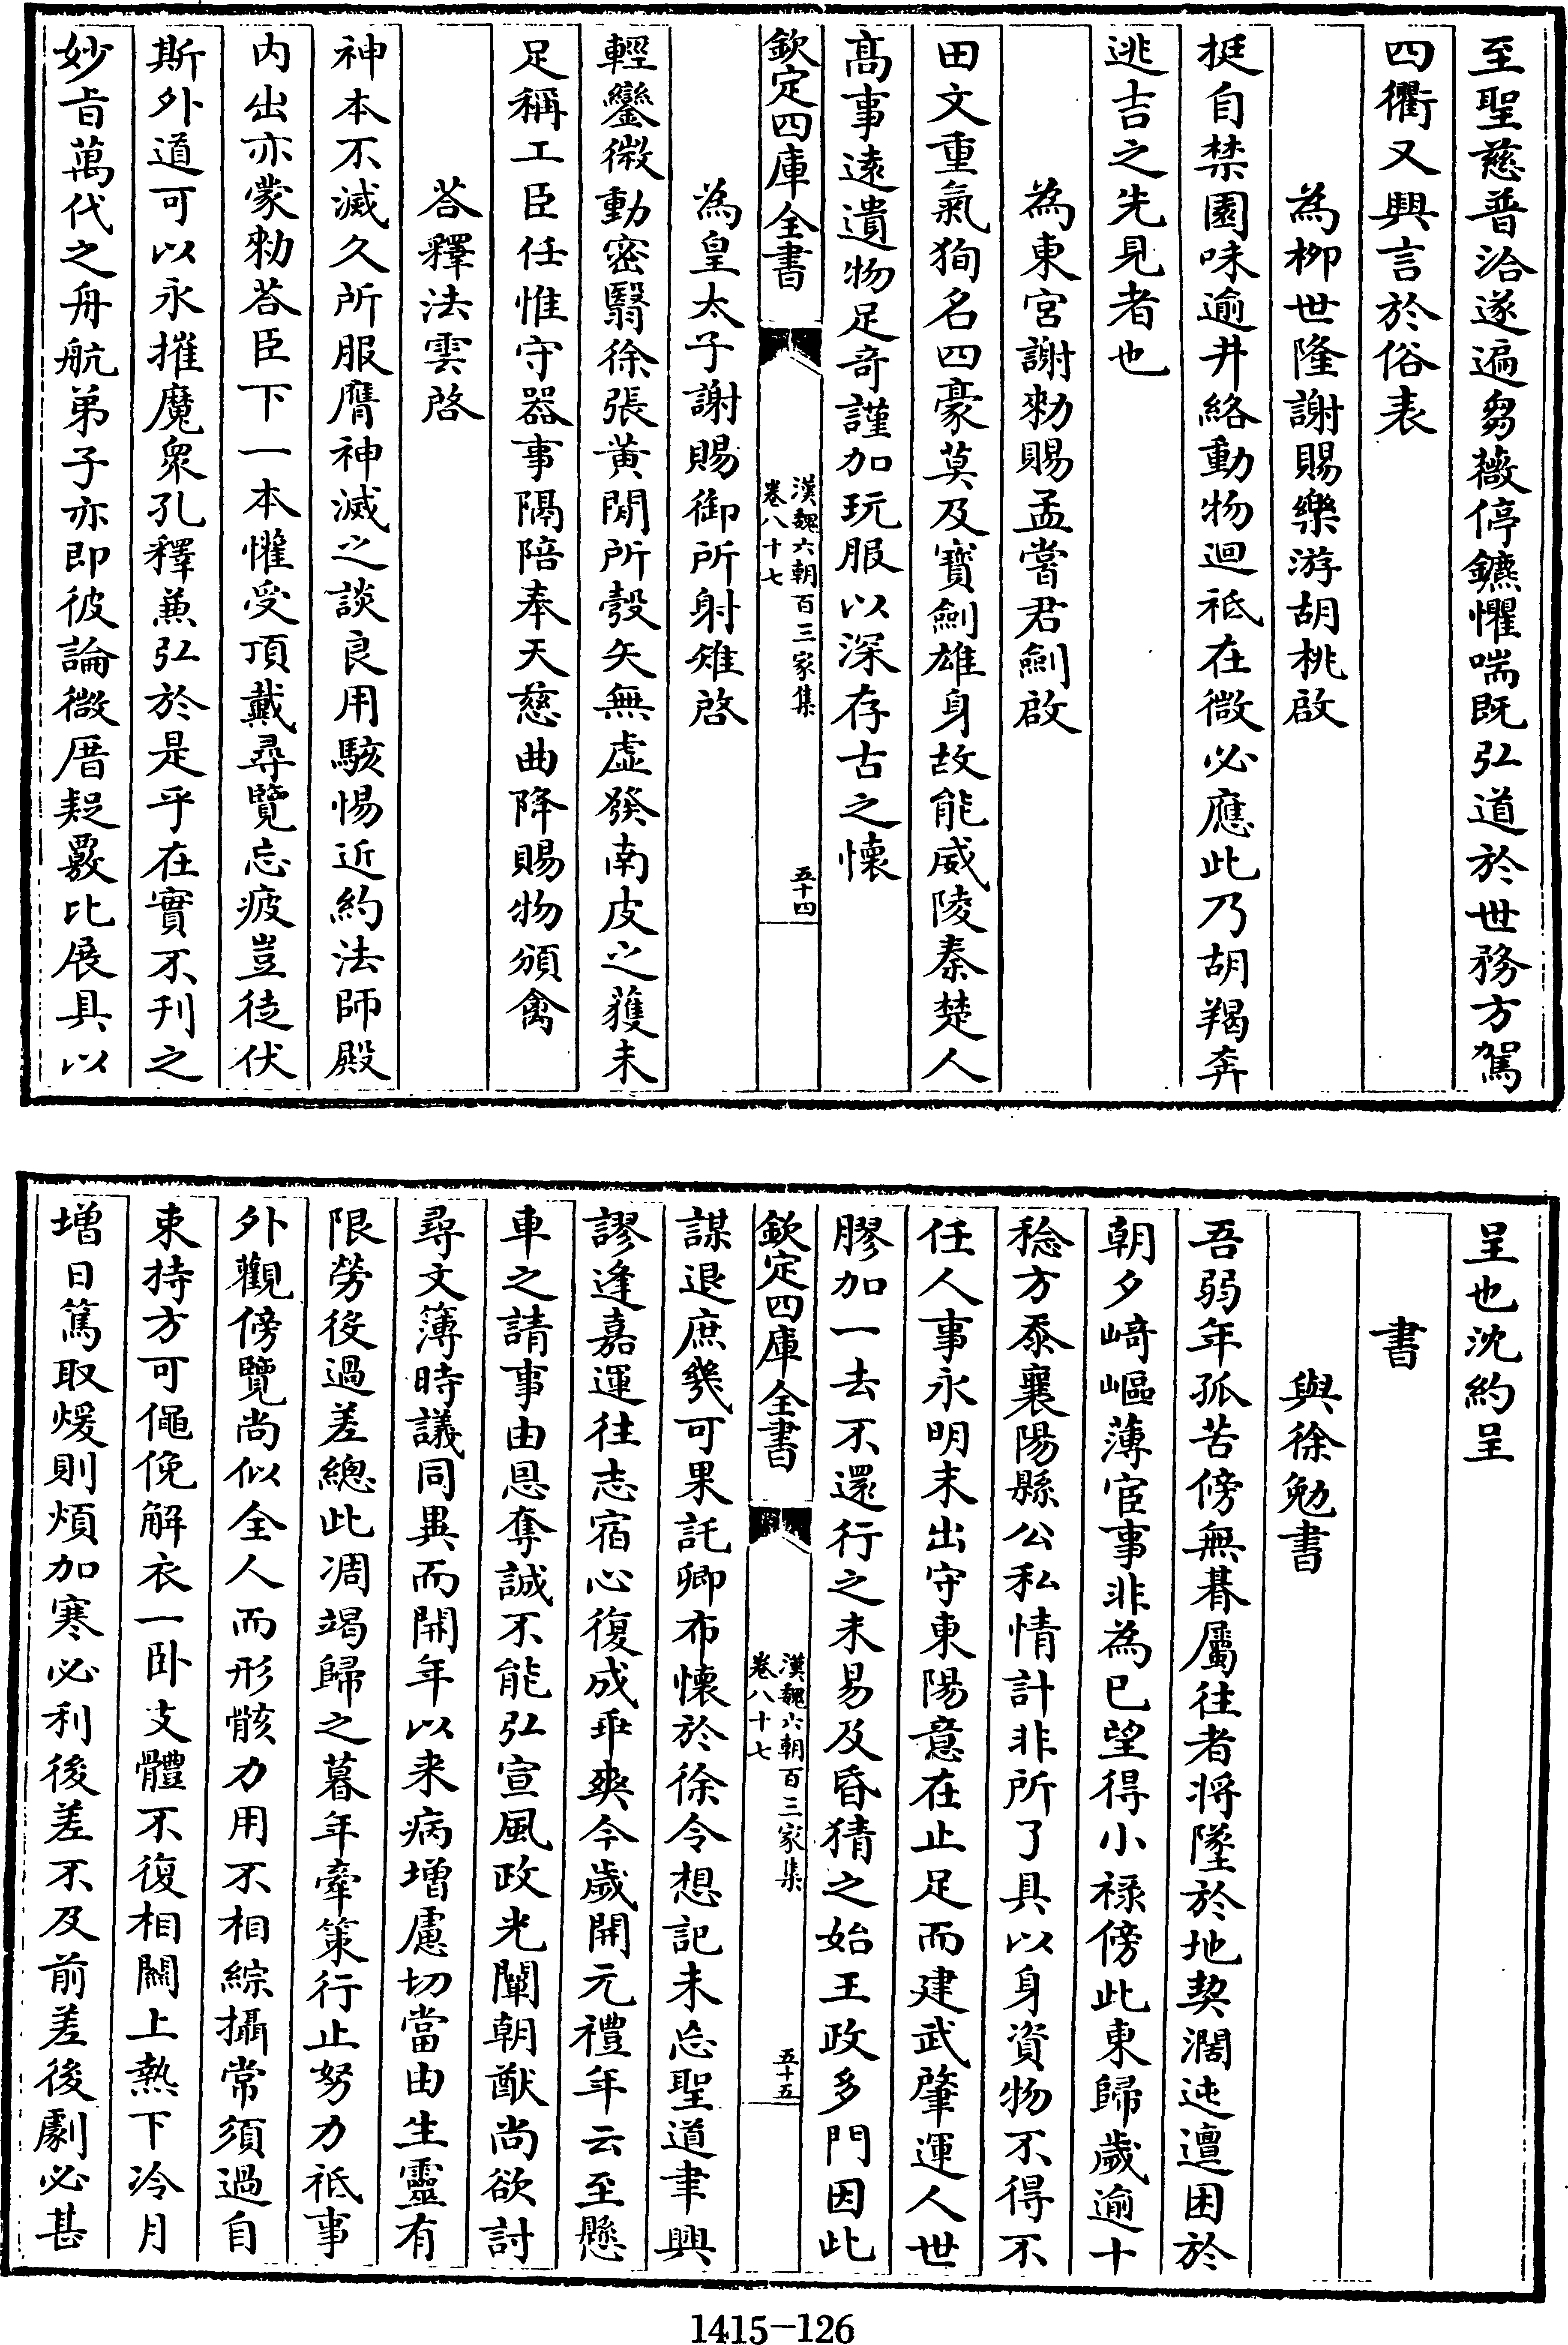 至聖慈普洽遂遍芻薇停鑣懼喘既弘道於世務方駕
四衢又興言於俗表
為栁世隆謝賜樂游胡桃啟
挺自禁園味逾井絡動物迴祗在微必應此乃胡羯奔
逃吉之先見者也
為東宮謝勑賜孟嘗君劍啟
田文重氣狥名四豪莫及寳劍雄身故能威陵秦楚人
髙事逺遺物足竒謹加玩服以深存古之懐
欽定四庫全書
漢魏六朝百三家集
卷八十七
五十四
為皇太子謝賜御所射雉啓
輕鑾微動密翳徐張黄閒所彀矢無虚發南皮之獲未
足稱工臣任惟守器事隔陪奉天慈曲降賜物頒禽
荅釋法雲啓
神本不滅久所服膺神滅之談良用駭惕近約法師殿
内出亦蒙勑荅臣下一本懽受頂戴尋覽忘疲豈徒伏
斯外道可以永摧魔衆孔釋兼弘於是乎在實不刋之
妙㫖萬代之舟航弟子亦即彼論微厝疑覈比展具以
呈也沈約呈
書
與徐勉書
吾弱年孤苦傍無朞屬往者將墜於地契濶迍邅困於
朝夕﨑嶇薄宦事非為已望得小禄傍此東歸歲逾十
稔方忝襄陽縣公私情計非所了具以身資物不得不
任人事永明末出守東陽意在止足而建武肇運人世
膠加一去不還行之未易及昏猜之始王政多門因此
謀退庶幾可果託卿布懐於徐令想記未忘聖道聿興
謬逢嘉運往志宿心復成乖爽今歲開元禮年云至懸
車之請事由恩奪誠不能弘宣風政光闡朝猷尚欲討
尋文簿時議同異而開年以来病增慮切當由生靈有
限勞役過差總此凋竭歸之暮年牽策行止努力祗事
外觀傍覽尚似全人而形骸力用不相綜攝常須過自
束持方可僶俛解衣一卧支體不復相闗上熱下冷月
增日篤取煖則煩加寒必利後差不及前差後劇必甚
1415-126